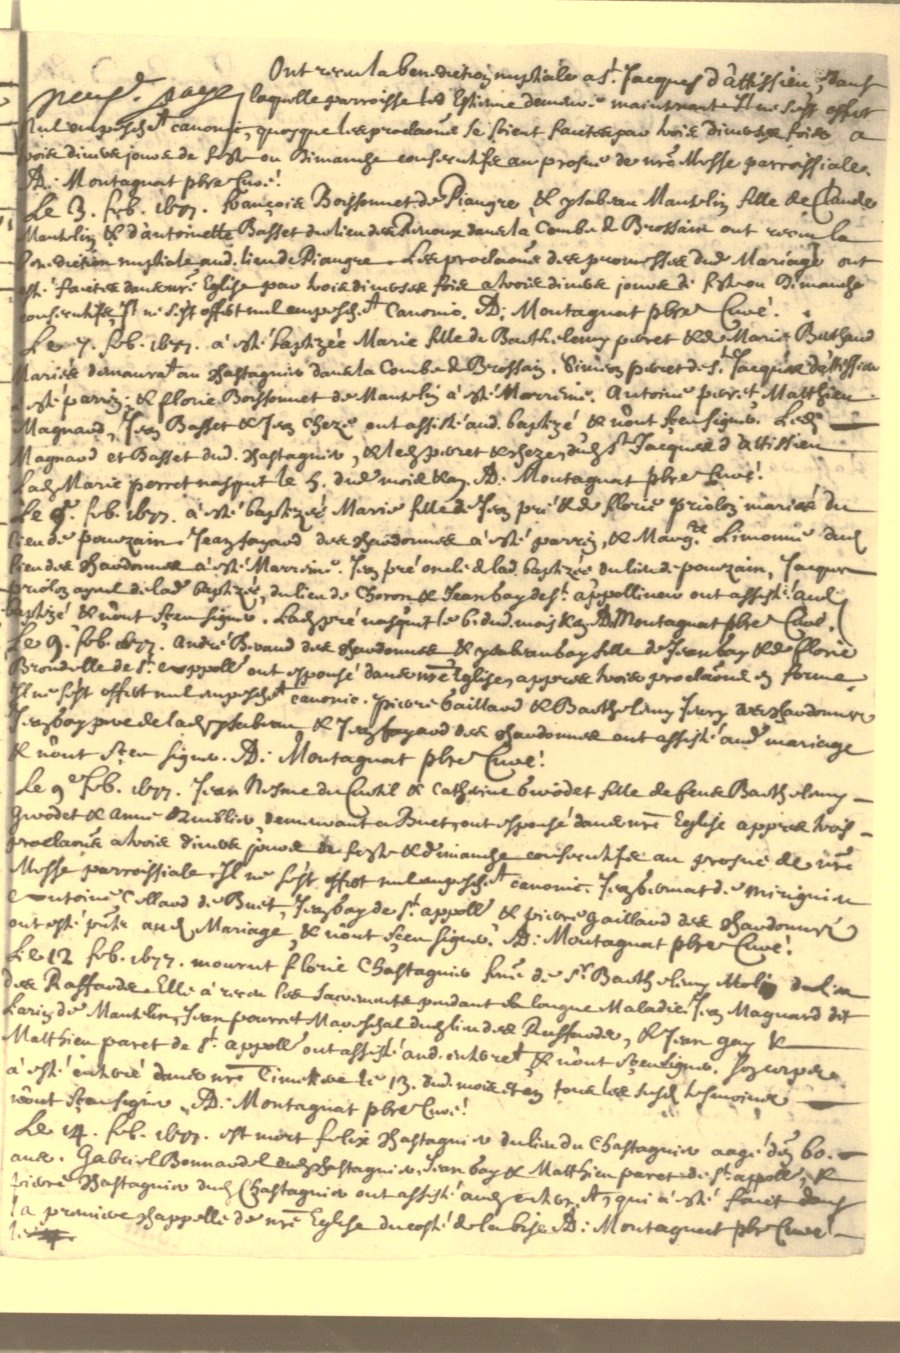 Ont receu la benediction nuptiale a St. Jacques d'âttissieu, dans
laquelle parroisse led Estienne demeure maintenant Il ne s'est offert
Nul empeschet canonic, quoyque les proclaõns se soient faites par trois diverses fois a
trois divers jours de feste ou Dimanche consecutifs au prosne de nre Messe parroissiale.
AD: Montagnat pbre Curé!
Le 3. feb. 1677. françois Boissonnet de Piangre & ysabeau Mantelin fille de Claude
Mantelin & d'antoinette Basset du lieu des Rivoux dans la Combe de Brossain ont receu la
benediction nuptiale aud. lieu de Piangre. Les proclaõns des promesses dud Mariage ont
esté faites dans nre Eglise par trois diverses fois a trois divers jours de feste ou Dimanche
consecutifs, Il ne s'est offert nul empeschet Canonic. AD: Montagnat pbre Curé!
Le 7. feb. 1677. a esté baptizée Marie fille de Barthelemy perret & de Marie
Mariés demeurat au Chastagnier dans la Combe de Brossain. Simeon perret de St. Jacques d'attissieu
a esté parrin, & florie Boissonnet de Mantelin a esté Marrine. Antoine perret Matthieu
Magnard, Jean Basset & Jean Cheze ont assisté aud. baptizé & n'ont sçeu signer. Led
Magnard et Basset dud. Chastagnier, & led perret & cheze, dud St Jacques d'attissieu
Lad Marie perret nasquit le 5. dud mois & an. AD: Montagnat pbre Curé!
Le 9. feb. 1677. a esté baptizée Marie fille de Jean pré & de florie priolon mariés du
lieu de pouzain. Jean fayard des Chardonnes a esté parrin, & Marg.te Limonne dud
lieu des Chardonnes a esté Marrine. Jean pré oncle de lad. baptizée du lieu de pouzain, Jacques
priolon ayeul de lad baptizée, du lieu de Choron & Jean bay de St. appollinar ont assisté aud
baptizé & n'ont sçeu signer. Lad pré nasquit le 6. dud. mois & an AD Montagnat pbre Curé.
Le 9. feb. 1677. André Bivaud des Chardonnes & ysabeau bay fille de Jean bay & de florie
Brondelle de St. appoll ont espousé dans nre Eglise, appres trois proclaõns en forme.
Il ne s'est offert nul empeschet canonic. pierre Gaillard & Barthelemy Jury des Chardonnes
Jean bay pere de lad ysabeau & Jean fayard des Chardonnes ont assisté aud mariage
& n'ont sçeu signer. AD: Montagnat pbre Curé!
Le 9e feb. 1677. Jean Nesme du Curtil & Catherine Girodet fille de feu Barthelemy
Girodet & Anne demeurant a Buet, ont espousé dans nre Eglise appres trois
proclaõns a trois divers jours de feste & dimanche consecutifs au prosne de nre
Messe parroissiale. Il ne s'est offert nul empeschet canonic. Jean bernat de
antoine Collard de Buet, Jean bay de St. appoll & pierre gaillard des Chardonnes
ont esté pnts aud. Mariage, & n'ont sçeu signer. AD: Montagnat pbre Curé!
Le 12 feb. 1677. mourut florie Chastagnier feme de Sr. Barthelemy Molin du lieu
des Raffardes. Elle a receu les Sacrements pendant sa longue Maladie. Jean Magnard dit
Larin de Mantelin, Jean pourret Mareschal dud lieu des Ruffardes, & Jean gay &
Matthieu paret de St. appoll ont assisté aud. enterret & n'ont sçeu signer. Son corps
a esté enterré dans nre Cimetiere le 13. dud. mois et an tous les susd tesmoins
n'ont sceu signer. AD: Montagnat pbre Curé!
Le 14. feb. 1677. est mort felix Chastagnier du lieu du Chastagnier aagé d'en 60.
ans. Gabriel Bonnardel dud Chastagnier, Jean bay & Matthieu paret de St. appoll, &
pierre Chastagnier dud Chastagnier ont assisté aud enterret, qui a esté faict dans
la premiere Chappelle de nre Eglise du costé de la bise AD: Montagnat pbre Curé!